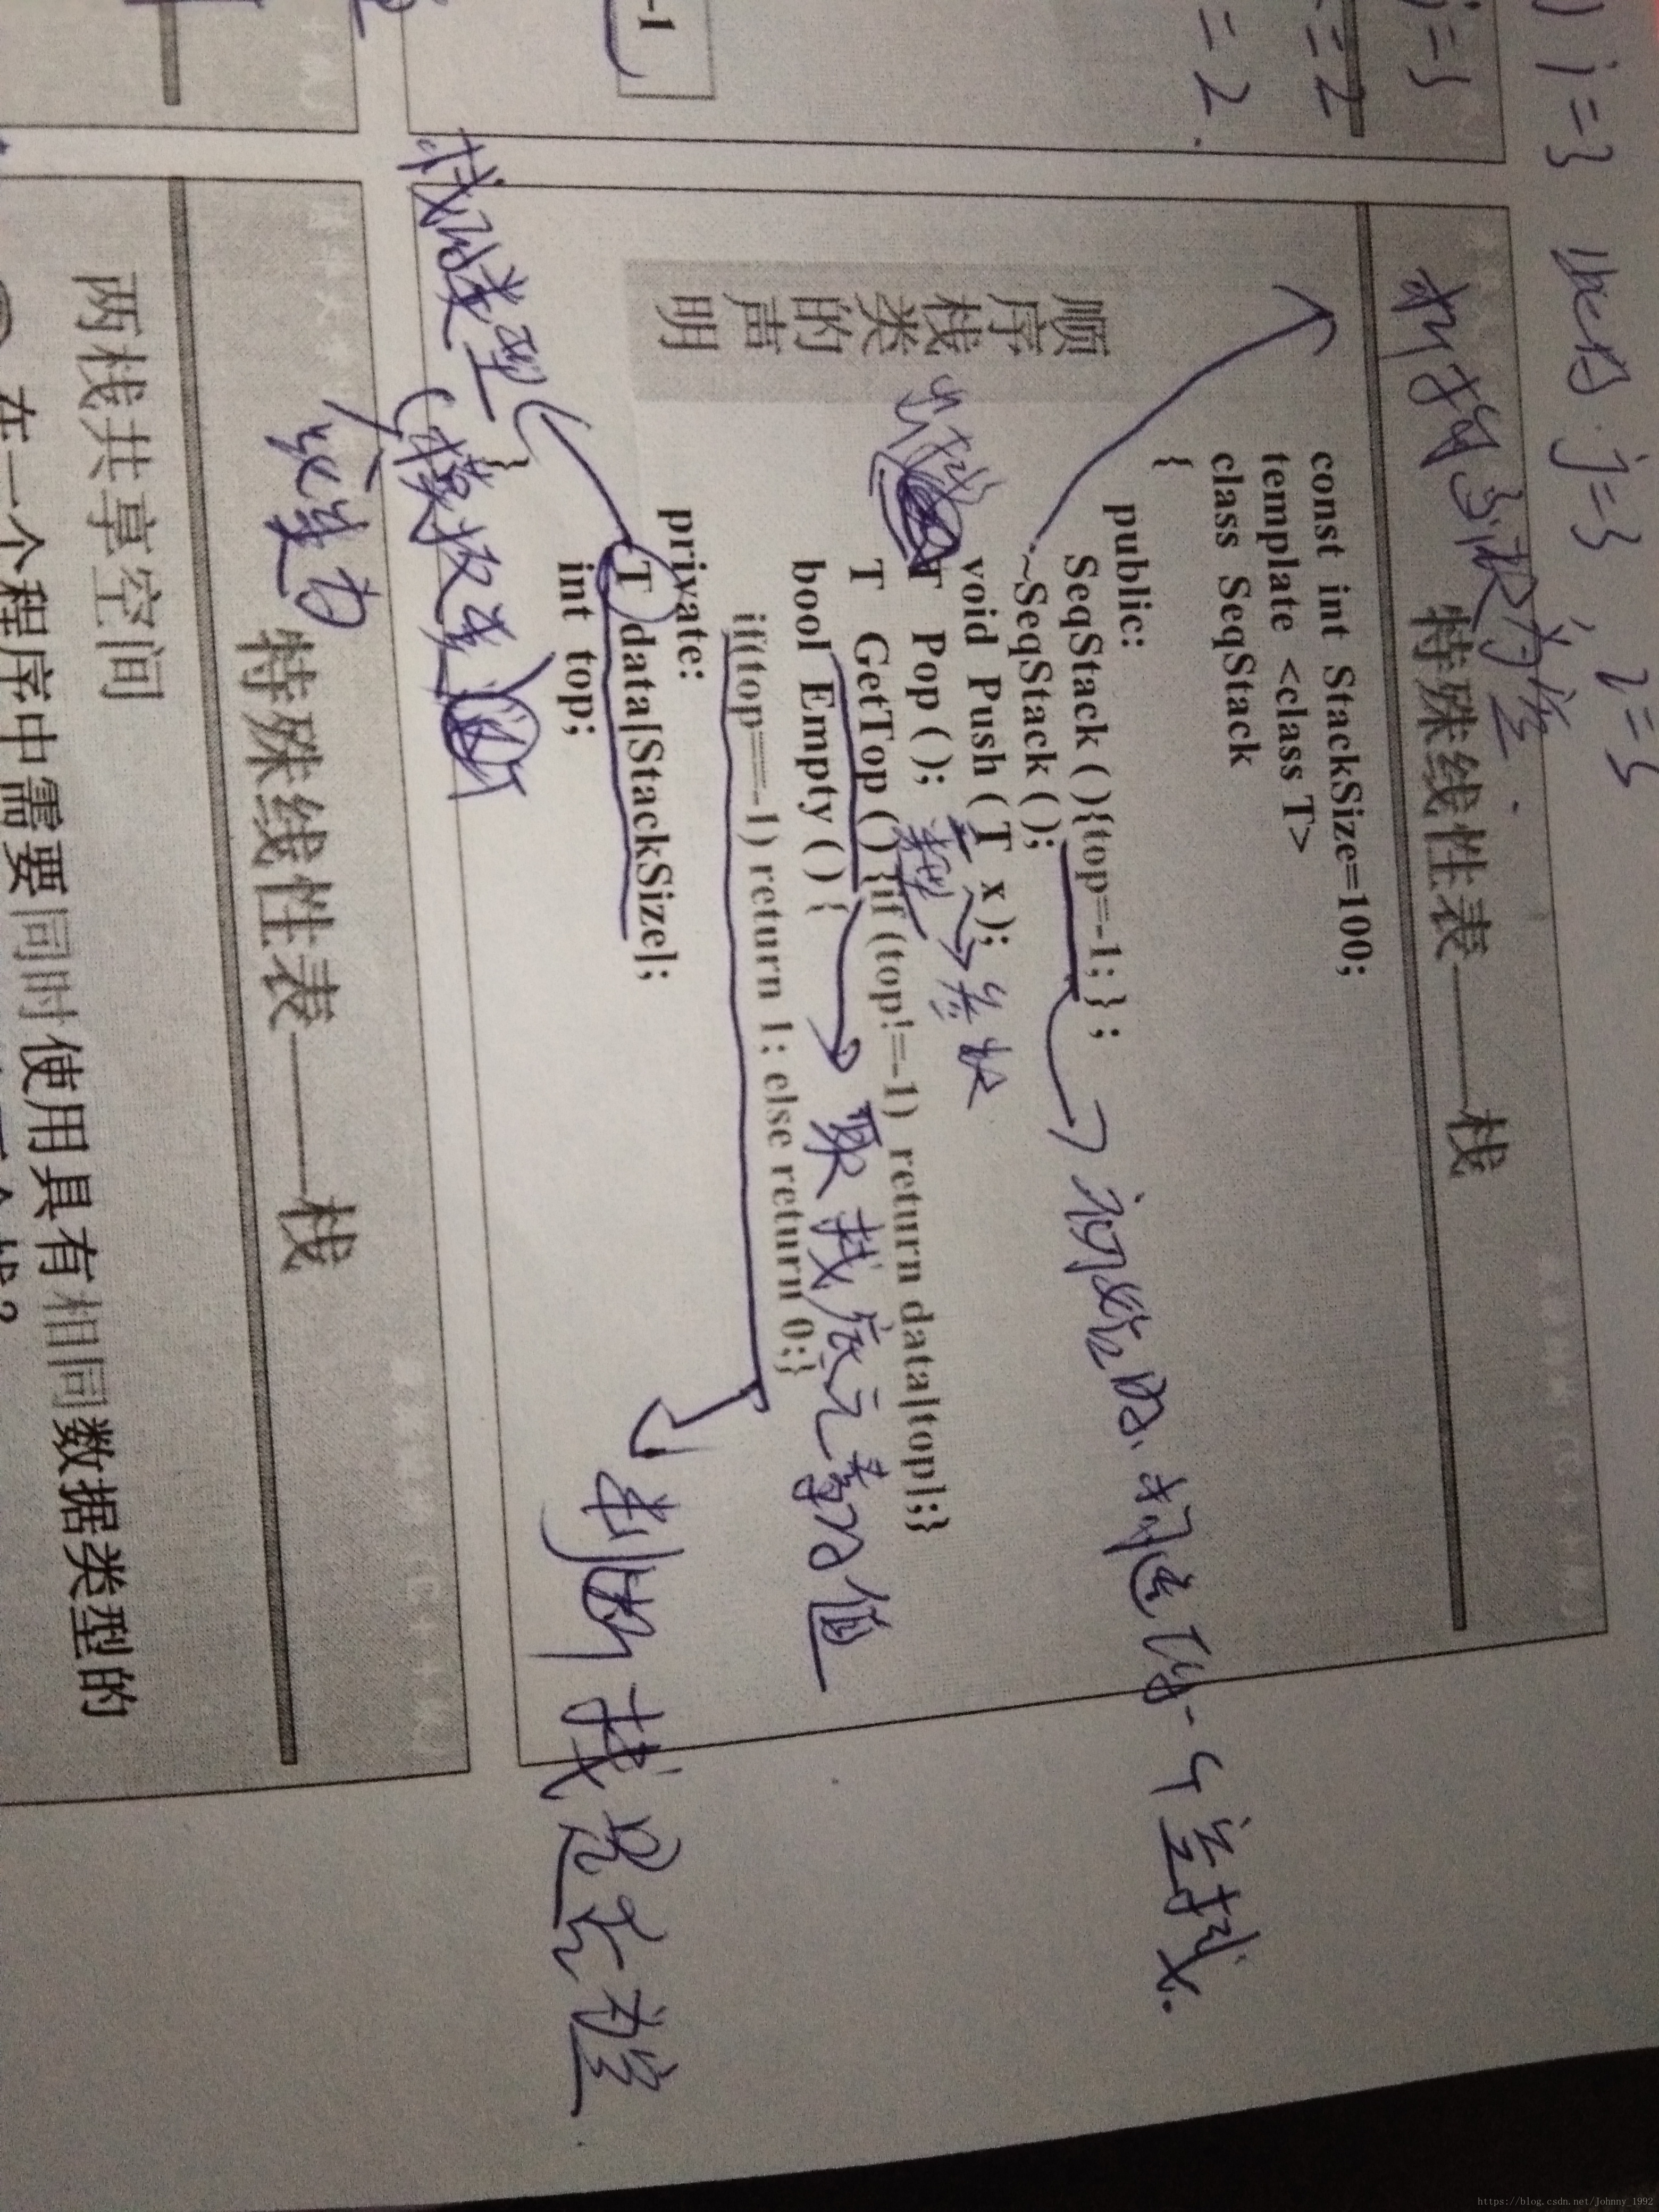 -1
=2
=2
j=3
) j=3 此时 j=3, i=3
特殊线性表——栈
const int StackSize=100;
template <class T>
class SeqStack
{
public:
SeqStack ( ){top=-1; } ;
初始时.构造了的一个空栈.
~SeqStack ( );
void Push ( T x );
T Pop ( );
类型
T GetTop ( ){if (top!=-1) return data[top];}
取栈底元素的值
bool Empty ( ) {
if(top==-1) return 1; else return 0;}
判断栈是否为空
private:
T data[StackSize];
int top;
}
顺序栈类的声明
栈的类型
(模板类)
特殊线性表——栈
两栈共享空间
在一个程序中需要同时使用具有相同数据类型的